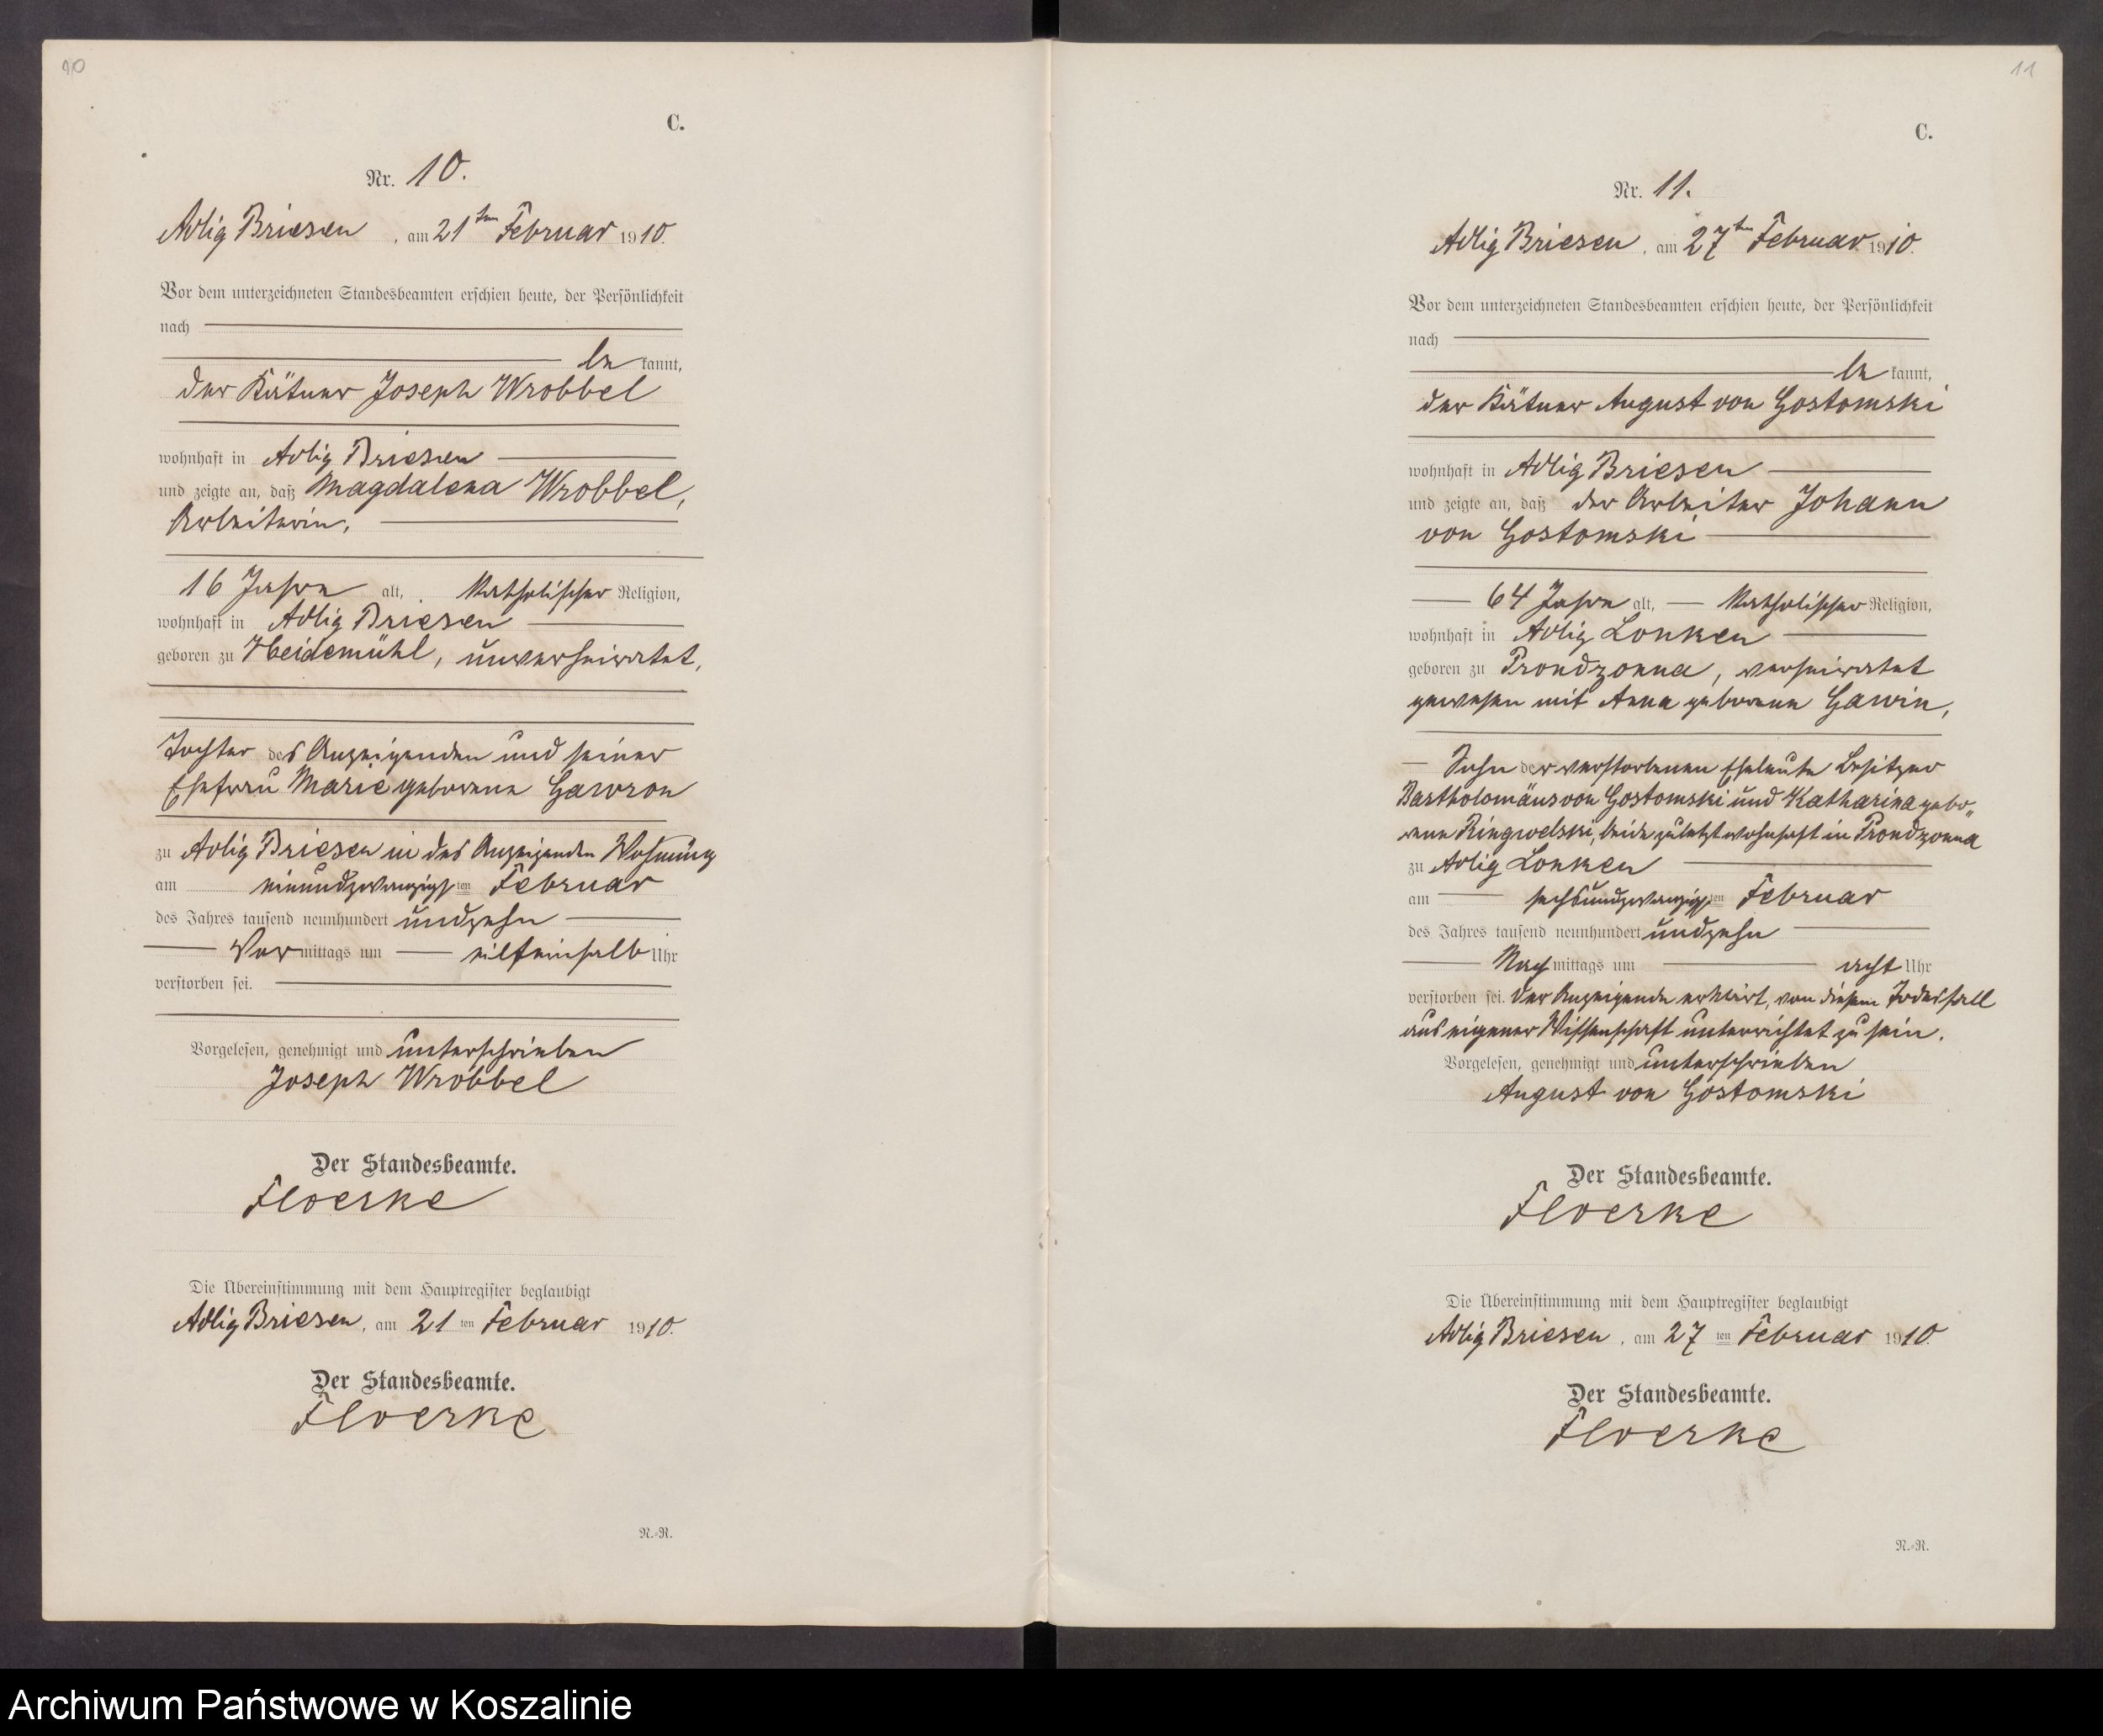 10
C.
Nr. 10.
Adlig Briesen, am 21ten Februar 1910.
Vor dem unterzeichneten Standesbeamten erschien heute, der Persönlichkeit
nach
be kannt,
der Kätner Joseph Wrobbel
wohnhaft in Adlig Briesen
und zeigte an, daß Magdalena Wrobbel,
Arbeiterin,
16 Jahre alt, katholischer Religion,
wohnhaft in Adlig Briesen
geboren zu Heidemühl, unverheiratet,
Tochter des Anzeigenden und seiner
Ehefrau Marie geborene Gawron
zu Adlig Briesen in des Anzeigenden Wohnung
am einundzwanzigsten Februar
des Jahres tausend neunhundert undzehn
Vormittags um elfeinhalb Uhr
verstorben sei.
Vorgelesen, genehmigt und unterschrieben
Joseph Wrobbel
Der Standesbeamte.
Floerke
Die Übereinstimmung mit dem Hauptregister beglaubigt
Adlig Briesen, am 21ten Februar 1910.
Der Standesbeamte.
Floerke
N.-R.
11
C.
Nr. 11.
Adlig Briesen, am 27ten Februar 1910.
Vor dem unterzeichneten Standesbeamten erschien heute, der Persönlichkeit
nach
be kannt,
der Kätner August von Gostomski
wohnhaft in Adlig Briesen
und zeigte an, daß der Arbeiter Johann
von Gostomski
64 Jahre alt, katholischer Religion,
wohnhaft in Adlig Lonken
geboren zu Prondzonna, verheiratet
gewesen mit Anna geborene Gawin,
Sohn der verstorbenen Eheleute Besitzer
Bartholomäus von Gostomski und Katharina gebo„
rene Ringwelski, beide zuletzt wohnhaft in Prondzonna
zu Adlig Lonken
am sechsundzwanzigsten Februar
des Jahres tausend neunhundert undzehn
Nachmittags um acht Uhr
verstorben sei. Der Anzeigende erklärt, von diesem Todesfall
aus eigener Wissenschaft unterrichtet zu sein.
Vorgelesen, genehmigt und unterschrieben
August von Gostomski
Der Standesbeamte.
Floerke
Die Übereinstimmung mit dem Hauptregister beglaubigt
Adlig Briesen, am 27ten Februar 1910.
Der Standesbeamte.
Floerke
N.-R.
Archiwum Państwowe w Koszalinie